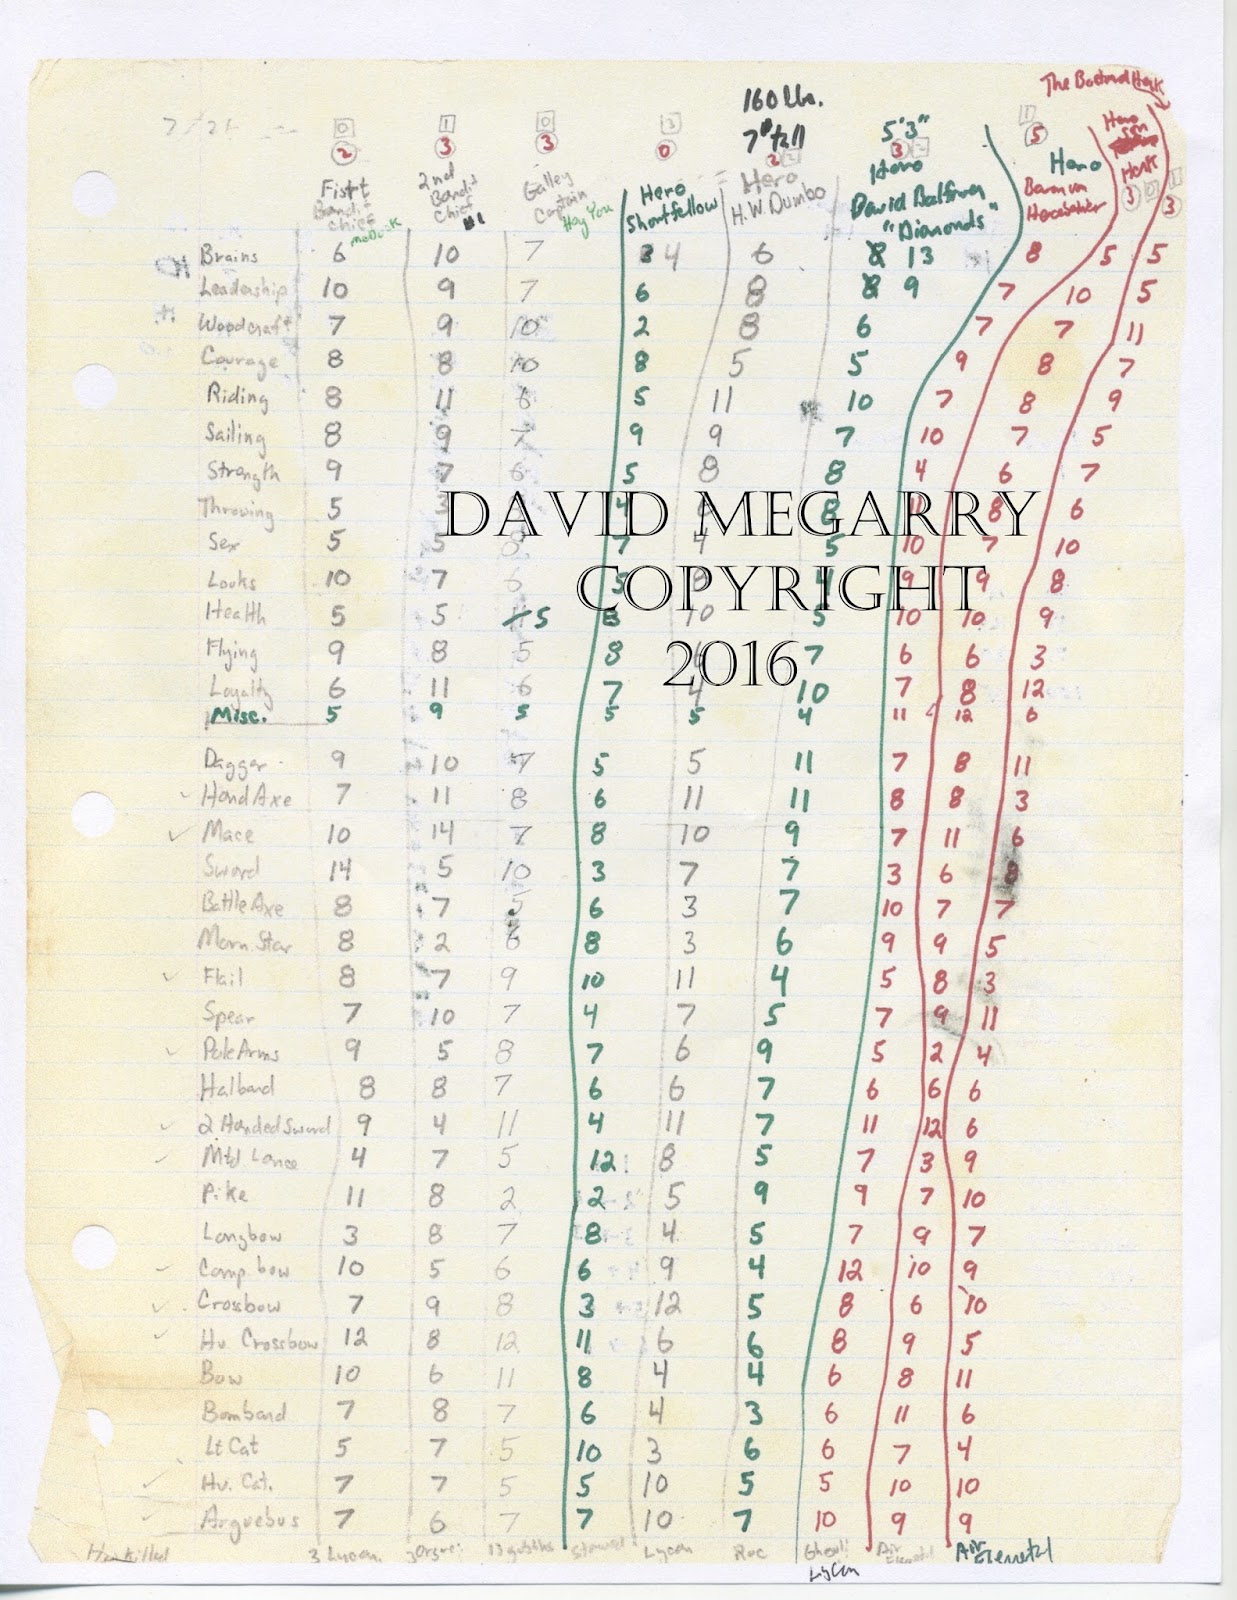 The Bastard Hork
160 lbs.
7' tall
5'3"
0 1 0 3 1
2 3 3 0 2 2 3 2 5
First Bandit Chief
2nd Bandit Chief #1
Galley Captain Hey You
Hero Shortfellow
Hero H.W. Dumbo
Hero David Balfour "Diamonds"
Hero Baron von
Hero
3 3
Brains 6 10 7 4 6 13 8 5 5
Leadership 10 9 7 6 8 9 7 10 5
Woodcraft 7 9 10 2 8 6 7 7 11
Courage 8 8 10 8 5 5 9 8 7
Riding 8 11 6 5 11 10 7 8 9
Sailing 8 9 7 9 9 7 10 7 5
Strength 9 7 6 5 8 8 4 6 7
Throwing 5 3 4 8 11 8 6
DAVID MEGARRY
Sex 5 5 7 4 5 10 7 10
Looks 10 7 6 5 8 4 9 9 8
COPYRIGHT
Health 5 5 5 8 10 5 10 10 9
Flying 9 8 5 8 7 6 6 3
2016
Loyalty 6 11 6 7 4 10 7 8 12
Misc. 5 9 5 5 5 4 11 12 6
Dagger 9 10 7 5 5 11 7 8 11
Hand Axe 7 11 8 6 11 11 8 8 3
Mace 10 14 7 8 10 9 7 11 6
Sword 14 5 10 3 7 7 3 6 8
Battle Axe 8 7 5 6 3 7 10 7 7
Morn. Star 8 2 6 8 3 6 9 9 5
Flail 8 7 9 10 11 4 5 8 3
Spear 7 10 7 4 7 5 7 9 11
Pole Arms 9 5 8 7 6 9 5 2 4
Halbard 8 8 7 6 6 7 6 6 6
2 Handed Sword 9 4 11 4 11 7 11 12 6
Mtd Lance 4 7 5 12 8 5 7 3 9
Pike 11 8 2 2 5 9 9 7 10
Longbow 3 8 7 8 4 5 7 9 7
Comp. bow 10 5 6 6 9 4 12 10 9
Crossbow 7 9 8 3 12 5 8 6 10
Hv Crossbow 12 8 12 11 6 6 8 9 5
Bow 10 6 11 8 4 4 6 8 11
Bombard 7 8 7 6 4 3 6 11 6
Lt Cat 5 7 5 10 3 6 6 7 4
Hv. Cat. 7 7 5 5 10 5 5 10 10
Arquebus 7 6 7 7 10 7 10 9 9
3 Lycan. Lycan Roc Ghoul Air Elemetal Air Elemetal
Lycan